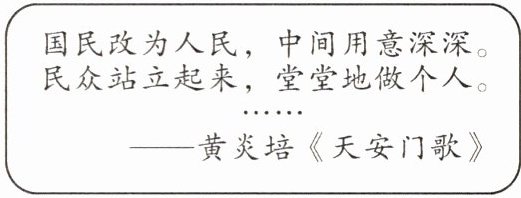 国民改为人民，中间用意深深。
民众站立起来，堂堂地做个人。
……
——黄炎培《天安门歌》